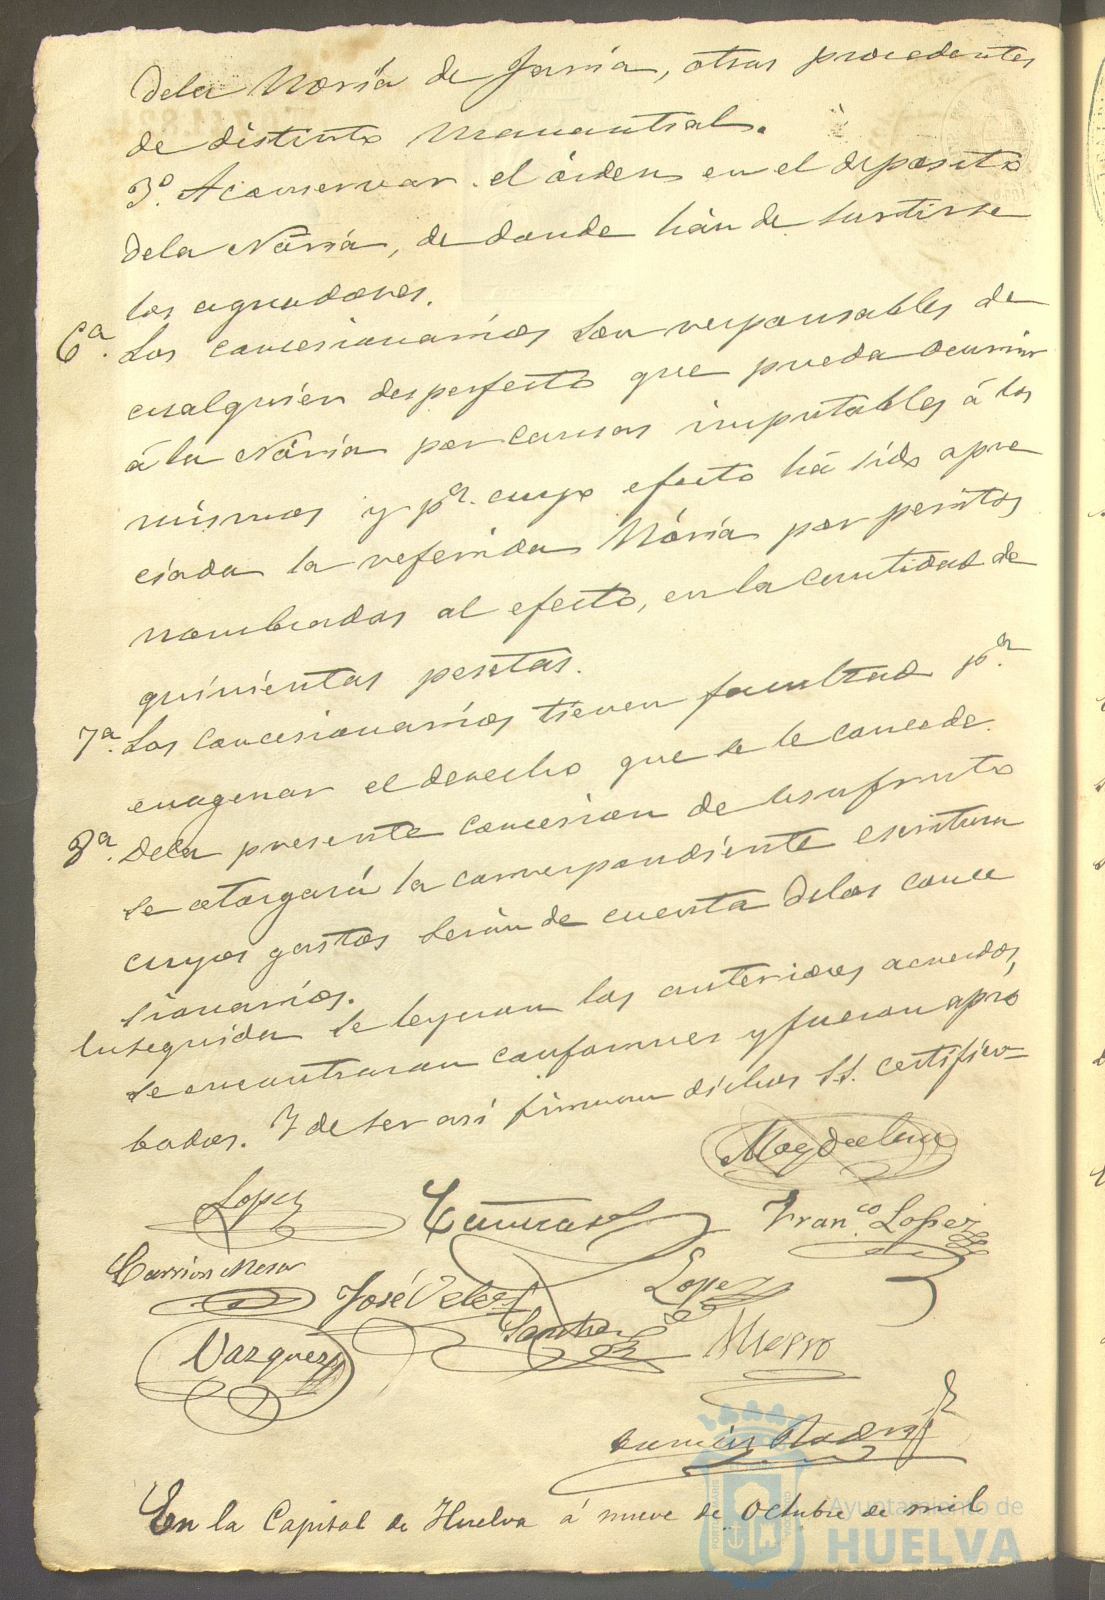 dela Noria de Jania, otras procedentes
de distinto manantial.
3º. A conservar el órden en el deposito
dela Nória, de donde hán de surtirse
los aguadores.
6ª. Los concesionarios son responsables de
cualquier desperfecto que pueda ocurrir
á la Nória por causas imputables á los
mismos y pª. cuyo efecto há sido apre
ciada la referida Nória por peritos
nombrados al efecto, en la cantidad de
quinientas pesetas.
7ª. Los concesionarios tienen facultad pª.
enagenar el derecho que se le concede.
8ª. Dela presente concesion de usufruto
se otorgará la correspondiente escritura
cuyos gastos serán de cuenta delos conce
sionarios.
Enseguida se leyeron los anteriores acuerdos,
se encontraron conformes y fueron apro
bados. Y de ser así firman dichos SS. certifico=
Magdalena
Lopez
Franco. Lopez
Carrion Mesa
José Velez
Lopez
Vazquez
Sanchez
En la Capital de Huelva á nueve de Octubre de mil
Ayuntamiento de
HUELVA